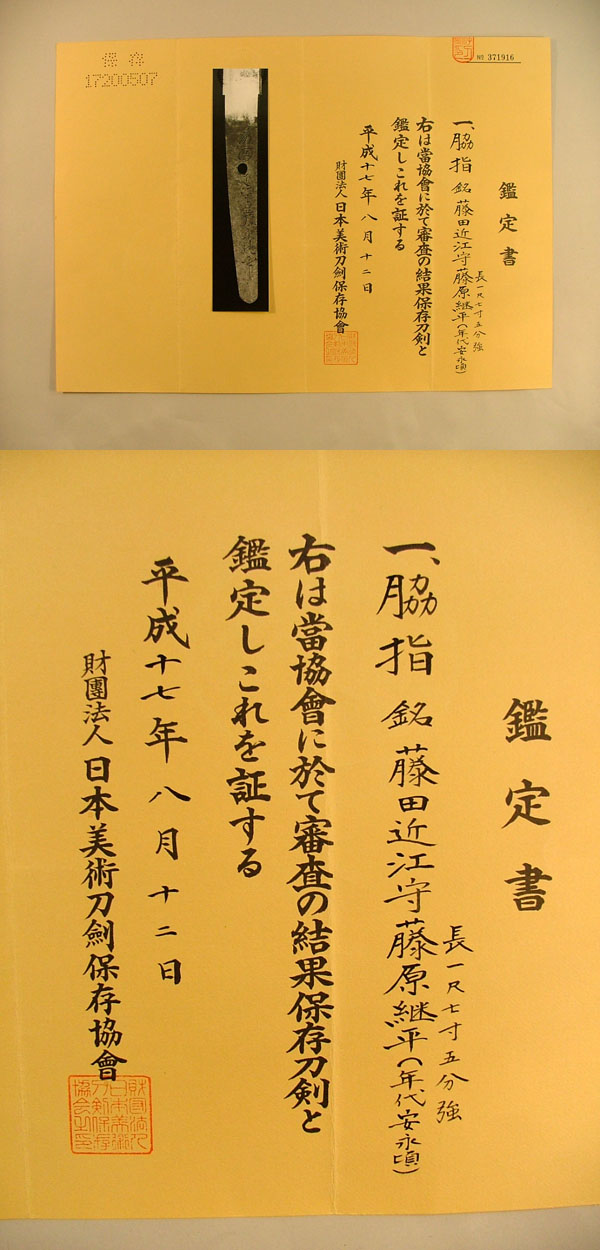 保存
17200507
№ 371916
鑑定書
一、脇指 銘 藤田近江守藤原継平(年代安永頃)
長一尺七寸五分強
右は當協會に於て審査の結果保存刀剣と
鑑定しこれを証する
平成十七年八月十二日
財團法人日本美術刀劍保存協會
鑑定書
一、脇指 銘 藤田近江守藤原継平(年代安永頃)
長一尺七寸五分強
右は當協會に於て審査の結果保存刀剣と
鑑定しこれを証する
平成十七年八月十二日
財團法人日本美術刀劍保存協會